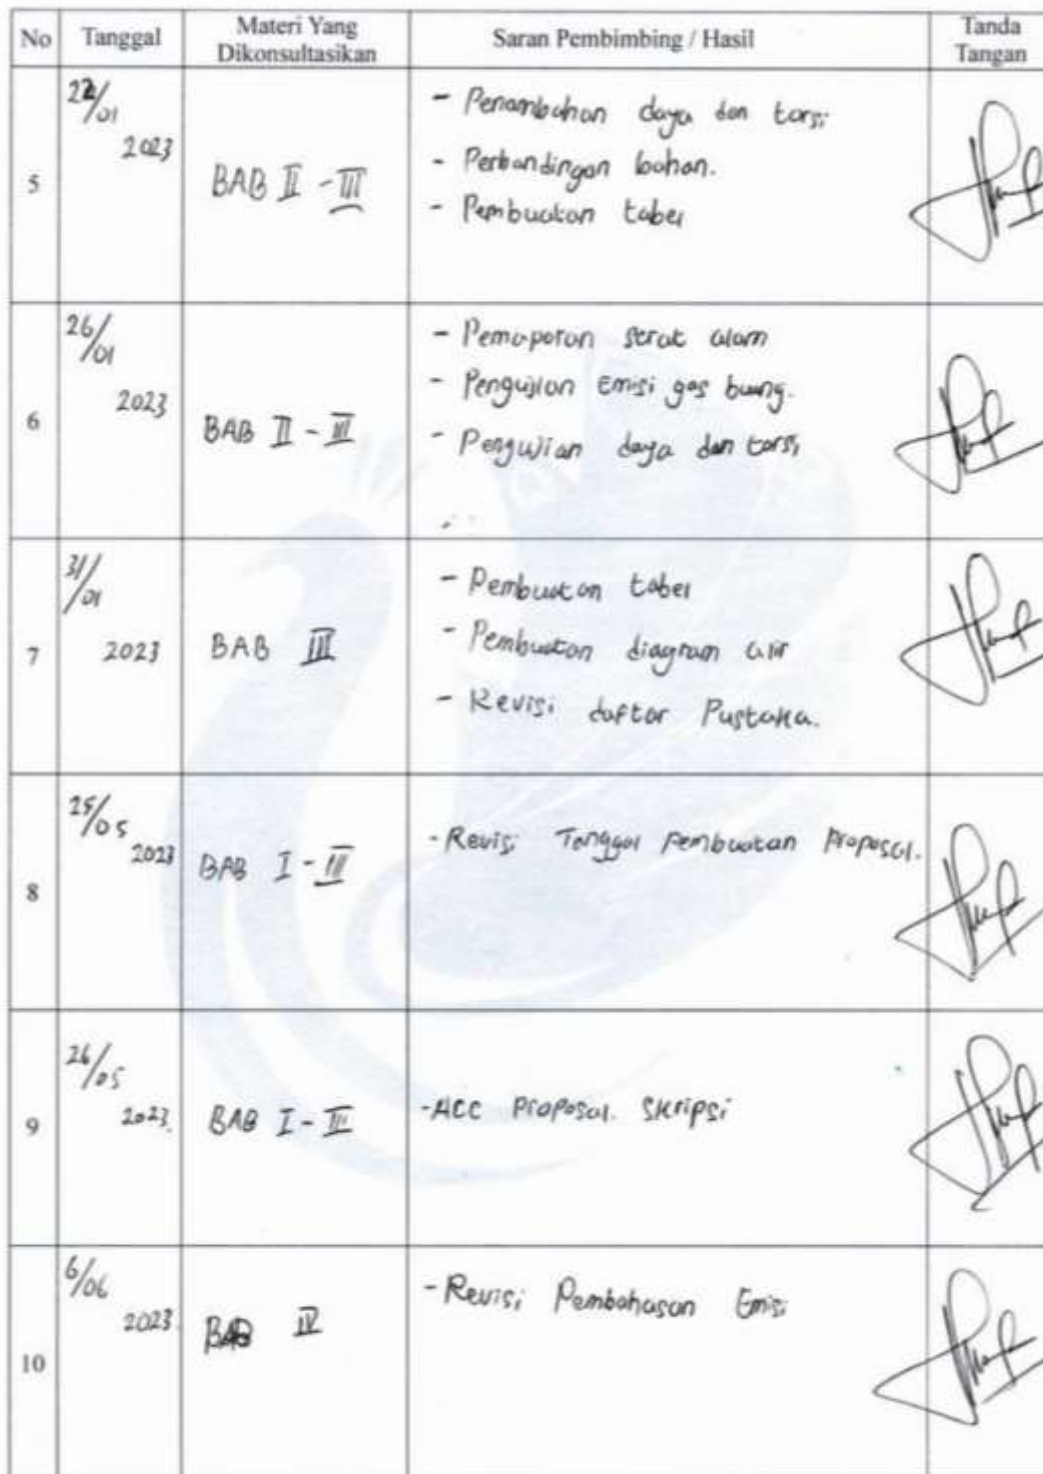 No Tanggal Materi Yang Dikonsultasikan Saran Pembimbing / Hasil Tanda Tangan
5
22/01
2023
BAB II - III
- Penambahan daya dan torsi
- Perbandingan bahan.
- Pembuatan tabel
6
26/01
2023
BAB II - III
- Pemaparan serat alam
- Pengujian Emisi gas buang.
- Pengujian daya dan torsi
7
31/01
2023
BAB III
- Pembuatan tabel
- Pembuatan diagram alir
- Revisi daftar Pustaka.
8
25/05
2023
BAB I - III
- Revisi Tanggal Pembuatan Proposal.
9
26/05
2023.
BAB I - III
- ACC Proposal. Skripsi
10
6/06
2023
BAB IV
- Revisi Pembahasan Emisi